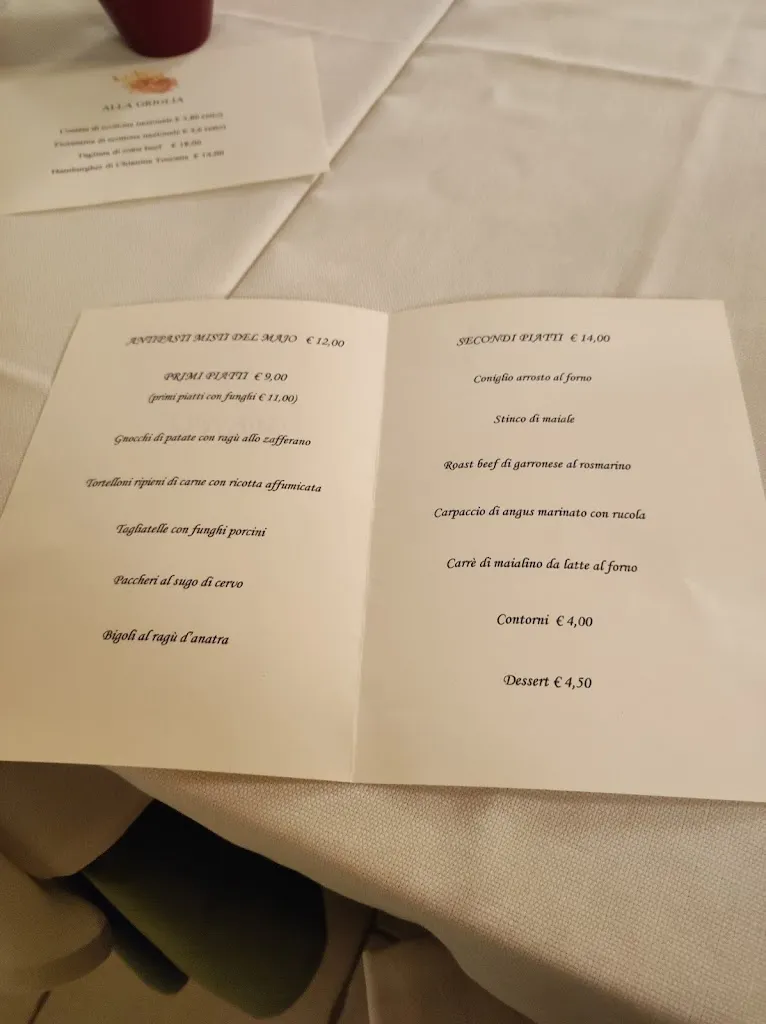 ALLA GRIGLIA
Tagliata di roast beef € 18,00
Hamburger di Chianina Toscana € 14,00
ANTIPASTI MISTI DEL MAJO € 12,00
PRIMI PIATTI € 9,00
(primi piatti con funghi € 11,00)
Gnocchi di patate con ragù allo zafferano
Tortelloni ripieni di carne con ricotta affumicata
Tagliatelle con funghi porcini
Paccheri al sugo di cervo
Bigoli al ragù d'anatra
SECONDI PIATTI € 14,00
Coniglio arrosto al forno
Stinco di maiale
Roast beef di garronese al rosmarino
Carpaccio di angus marinato con rucola
Carrè di maialino da latte al forno
Contorni € 4,00
Dessert € 4,50